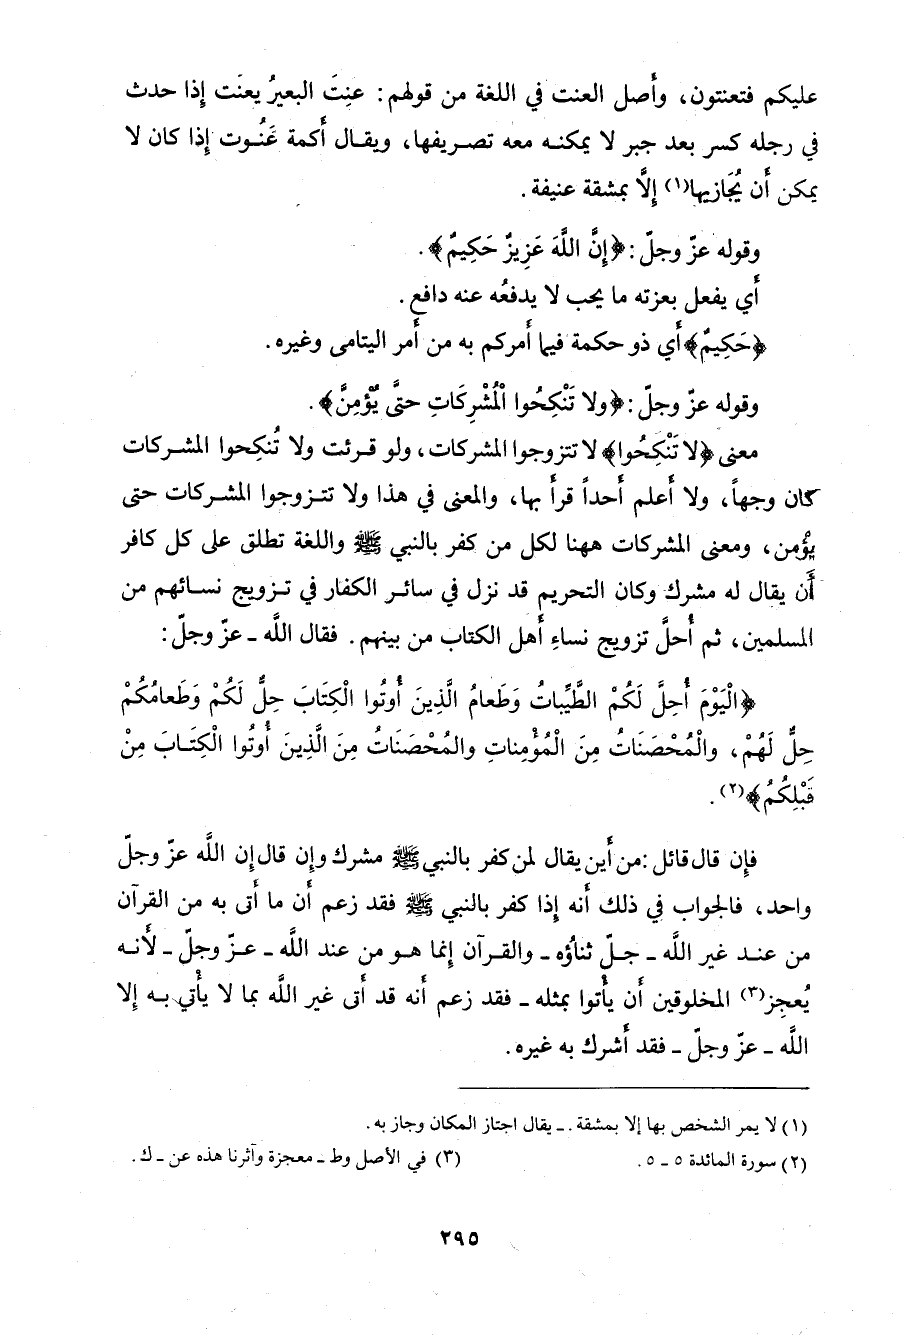 عليكم فتعنتون، وأَصل العنت في اللغة من قولهم: عنِتَ البعيرُ يعنَت إذا حدث
في رجله كسر بعد جبر لا يمكنه معه تصريفها، ويقال أَكمة عَنُوت إذا كان لا
يمكن أَن يُجَازيها(١) إلَّا بمشقة عنيفة.
وقوله عزّ وجلّ: ﴿إِنَّ اللَّهَ عَزِيزٌ حَكِيمٌ﴾.
أَي يفعل بعزته ما يحب لا يدفعُه عنه دافع.
﴿حَكِيمٌ﴾ أَي ذو حكمة فيما أَمركم به من أَمر اليتامى وغيره.
وقوله عزّ وجلّ: ﴿ولا تَنْكِحُوا الْمُشْرِكَاتِ حتَّى يُؤْمِنَّ﴾.
معنى ﴿لا تَنْكِحُوا﴾ لا تتزوجوا المشركات، ولو قرئت ولا تُنكِحوا المشركات
كان وجهاً، ولا أَعلم أَحداً قرأَ بها، والمعنى في هذا ولا تتزوجوا المشركات حتى
يؤْمن، ومعنى المشركات ههنا لكل من كفر بالنبي ﷺ واللغة تطلق على كل كافر
أَن يقال له مشرك وكان التحريم قد نزل في سائر الكفار في تزويج نسائهم من
المسلمين، ثم أُحلَّ تزويج نساءِ أَهل الكتاب من بينهم. فقال الله ـ عزّ وجلّ:
﴿الْيَوْمَ أُحِلَّ لَكُمْ الطَّيِّباتُ وَطَعامُ الَّذِينَ أُوتُوا الْكِتَابَ حِلٌّ لَكُمْ وَطَعامُكُمْ
حِلٌّ لَهُمْ، والْمُحْصَنَاتُ مِنَ الْمُؤْمِناتِ والمُحْصَنَاتُ مِنَ الَّذِينَ أُوتُوا الْكِتَـابَ مِنْ
قَبْلِكُمُ﴾(٢).
فإن قال قائل: من أَين يقال لمن كفر بالنبي ﷺ مشرك وإن قال إن الله عزّ وجلّ
واحد، فالجواب في ذلك أَنه إذا كفر بالنبي ﷺ فقد زعم أَن ما أَتى به من القرآن
من عند غير اللَّه ـ جلّ ثناؤه ـ والقرآن إنما هو من عند اللَّه ـ عزّ وجلّ ـ لأَنه
يُعجِز(٣) المخلوقين أَن يأْتوا بمثله ـ فقد زعم أَنه قد أَتى غير اللَّه بما لا يأْتي به إلا
اللَّه ـ عزّ وجلّ ـ فقد أَشرك به غيره.
(١) لا يمر الشخص بها إلا بمشقة. ـ يقال اجتاز المكان وجاز به.
(٢) سورة المائدة ٥ ـ ٥. (٣) في الأصل وط ـ معجزة وآثرنا هذه عن ـ ك.
٢٩٥